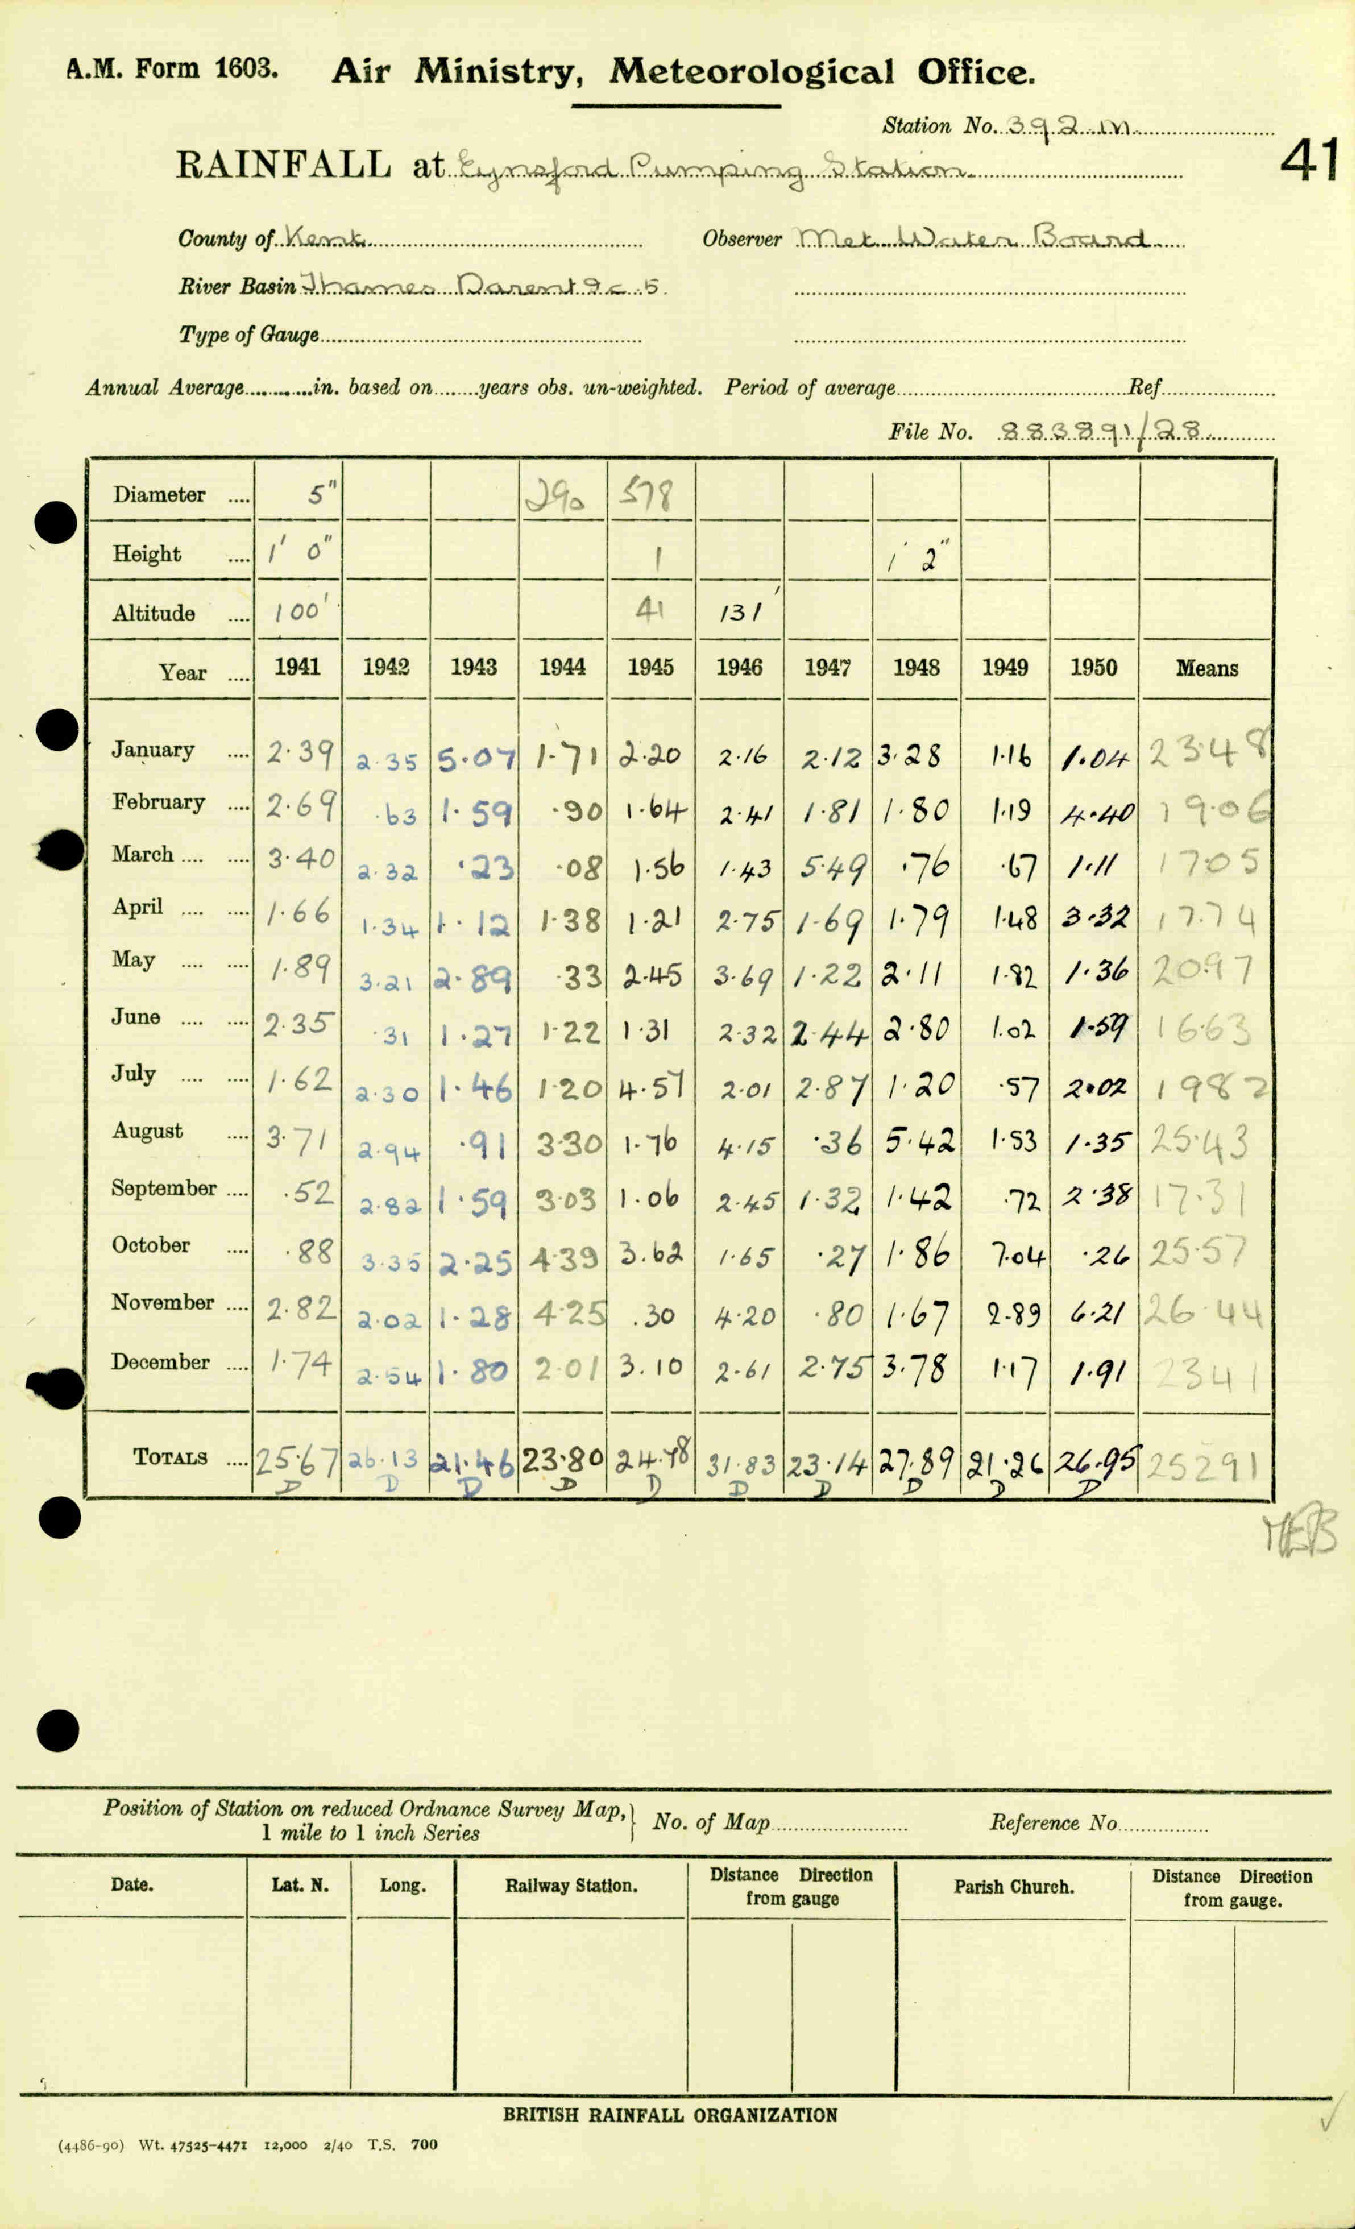 A.M. Form 1603. Air Ministry, Meteorological Office.
Station No. 392 M
41
RAINFALL at Eynsford Pumping Station
County of Kent Observer Met Water Board
River Basin Thames Darent 9c.5
Type of Gauge
Annual Average in. based on years obs. un-weighted. Period of average Ref
File No. 883891/28
Diameter .... 5" 290 578
Height .... 1' 0" 1 1' 2"
Altitude .... 100' 41 131'
Year .... 1941 1942 1943 1944 1945 1946 1947 1948 1949 1950 Means
January .... 2·39 2·35 5·07 1·71 2·20 2·16 2·12 3·28 1·16 1·04 23·48
February .... 2·69 ·63 1·59 ·90 1·64 2·41 1·81 1·80 1·19 4·40 19·06
March .... .... 3·40 2·32 ·23 ·08 1·56 1·43 5·49 ·76 ·67 1·11 17·05
April .... .... 1·66 1·34 1·12 1·38 1·21 2·75 1·69 1·79 1·48 3·32 17·74
May .... .... 1·89 3·21 2·89 ·33 2·45 3·69 1·22 2·11 1·82 1·36 20·97
June .... .... 2·35 ·31 1·27 1·22 1·31 2·32 2·44 2·80 1·02 1·59 16·63
July .... .... 1·62 2·30 1·46 1·20 4·57 2·01 2·87 1·20 ·57 2·02 1982
August .... 3·71 2·94 ·91 3·30 1·76 4·15 ·36 5·42 1·53 1·35 25·43
September .... ·52 2·82 1·59 3·03 1·06 2·45 1·32 1·42 ·72 2·38 17·31
October .... ·88 3·35 2·25 4·39 3·62 1·65 ·27 1·86 7·04 ·26 25·57
November .... 2·82 2·02 1·28 4·25 ·30 4·20 ·80 1·67 2·89 6·21 26·44
December .... 1·74 2·54 1·80 2·01 3·10 2·61 2·75 3·78 1·17 1·91 2341
TOTALS .... 25·67 26·13 21·46 23·80 24·78 31·83 23·14 27·89 21·26 26·95 25291
D D D D D D D D D D
Position of Station on reduced Ordnance Survey Map, 1 mile to 1 inch Series } No. of Map Reference No.
Date. Lat. N. Long. Railway Station. Distance Direction from gauge Parish Church. Distance Direction from gauge.
BRITISH RAINFALL ORGANIZATION
(4486-90) Wt. 47525-4471 12,000 2/40 T.S. 700